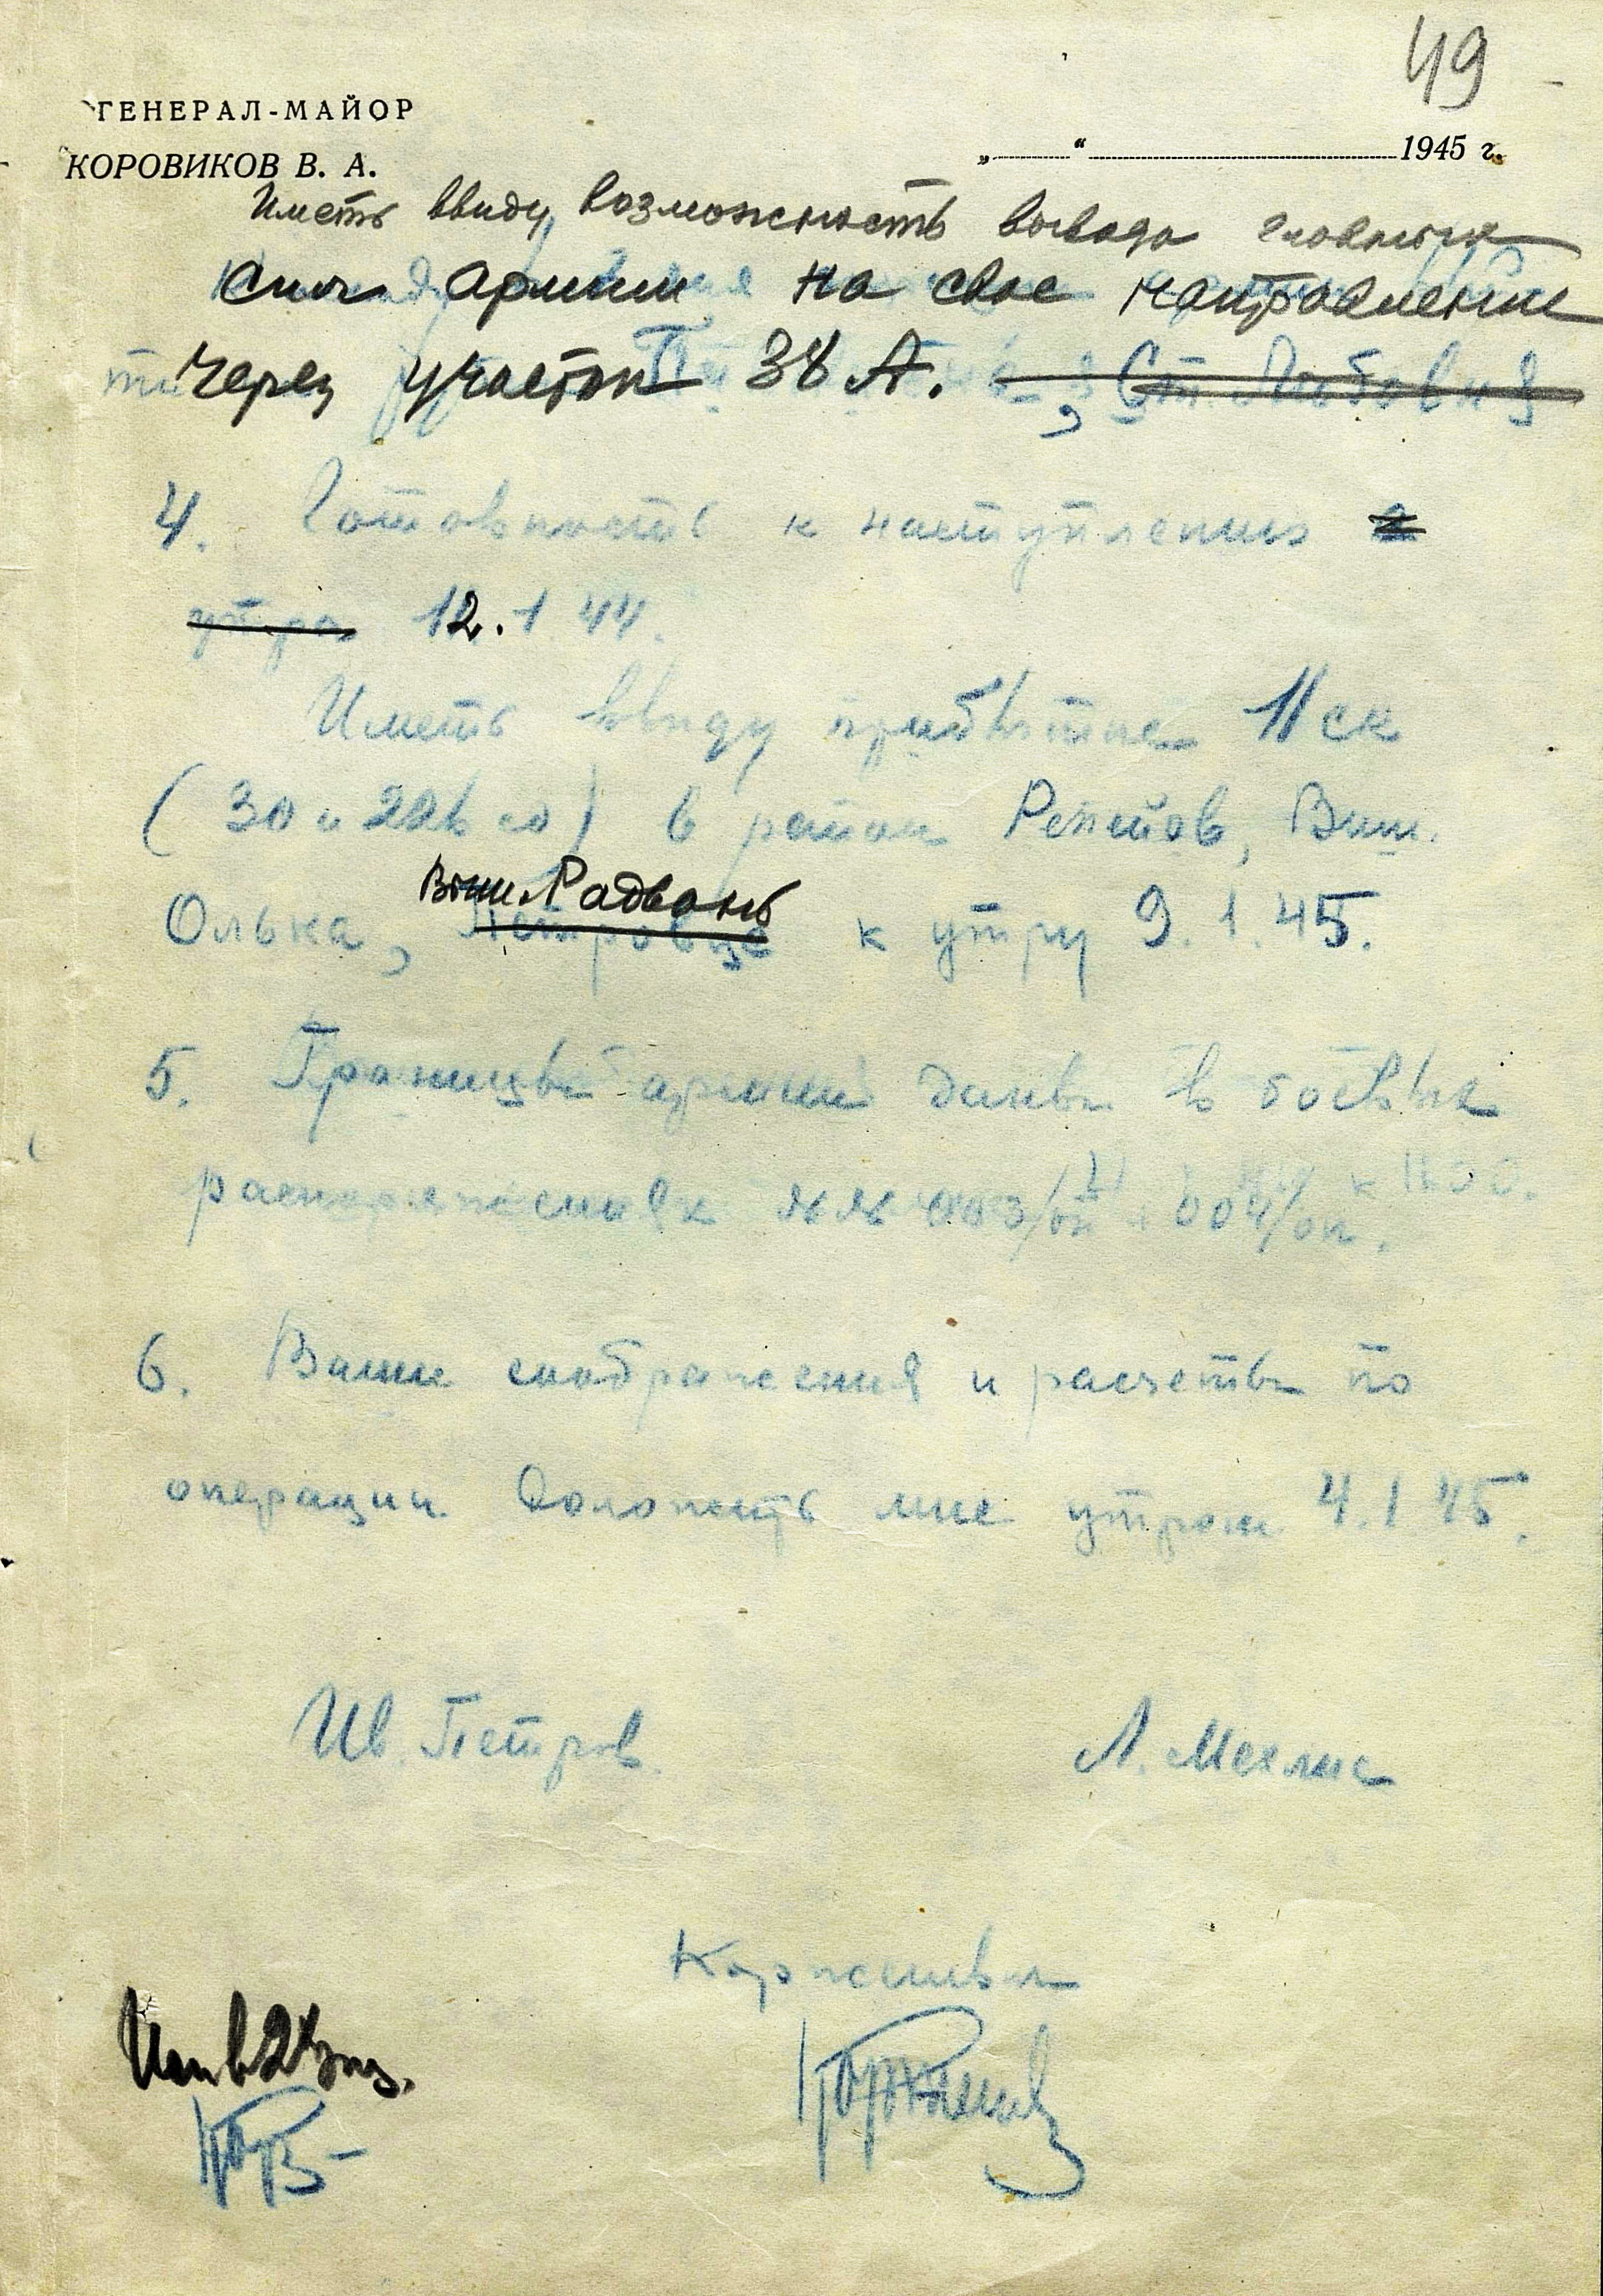 49
ГЕНЕРАЛ-МАЙОР
КОРОВИКОВ В. А.
„ “ 1945 г.
Иметь ввиду возможность вывода главных
сил армии на свое направление
через участок 38 А.
4. Готовность к наступлению с
утра 12.1 44.
Иметь ввиду прибытие 11 ск
(30 и 226 сд) в район Репейов, Выш.
Выш. Радвань
Олька, Петровце к утру 9.1.45.
5. Границы армии даны в боевых
распоряжениях №№ 003/оп и 004/оп.
6. Ваши соображения и расчеты по
операции доложить мне утром 4.1 45.
Ив. Петров. Л. Мехлис
Корженевич